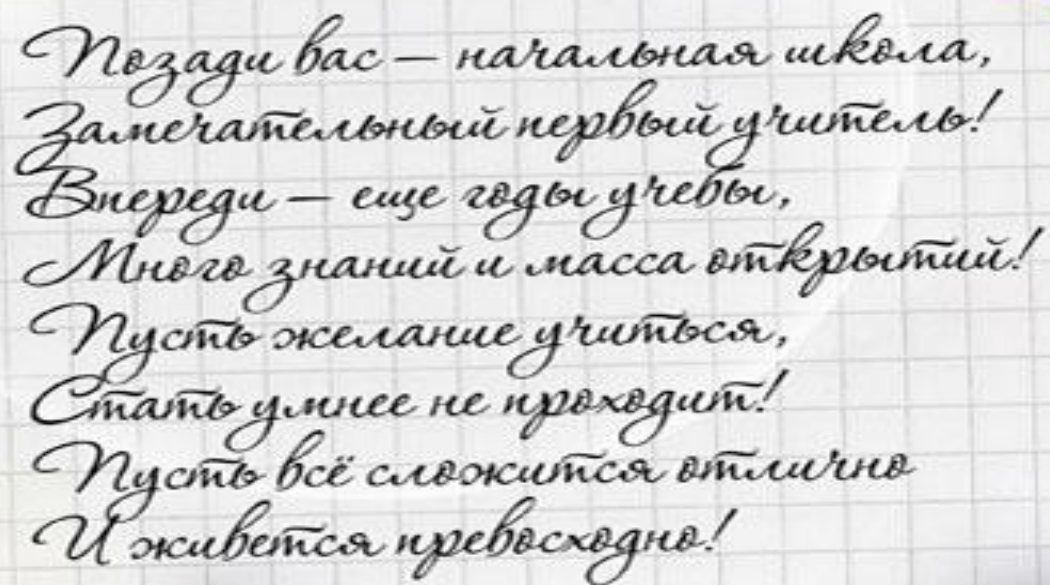 Позади вас – начальная школа,
Замечательный первый учитель!
Впереди – еще годы учебы,
Много знаний и масса открытий!
Пусть желание учиться,
Стать умнее не проходит!
Пусть всё сложится отлично
И живется превосходно!